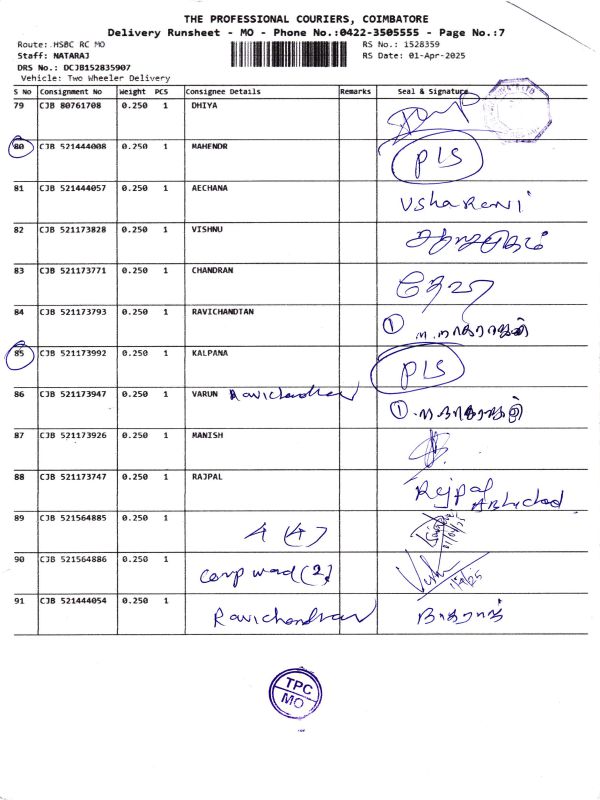 THE PROFESSIONAL COURIERS, COIMBATORE
Delivery Runsheet - MO - Phone No.:0422-3505555 - Page No.:7
Route: HSBC RC MO RS No.: 1528359
Staff: NATARAJ RS Date: 01-Apr-2025
DRS No.: DCJB152835907
Vehicle: Two Wheeler Delivery
S No Consignment No Weight PCS Consignee Details Remarks Seal & Signature
79 CJB 80761708 0.250 1 DHIYA
80 CJB 521444008 0.250 1 MAHENDR PLS
81 CJB 521444057 0.250 1 AECHANA Usha Rani
82 CJB 521173828 0.250 1 VISHNU
83 CJB 521173771 0.250 1 CHANDRAN
84 CJB 521173793 0.250 1 RAVICHANDTAN 1
85 CJB 521173992 0.250 1 KALPANA PLS
86 CJB 521173947 0.250 1 VARUN Ravichandran 1
87 CJB 521173926 0.250 1 MANISH
88 CJB 521173747 0.250 1 RAJPAL Rajpal
89 CJB 521564885 0.250 1 4 (4)
90 CJB 521564886 0.250 1 (2)
91 CJB 521444054 0.250 1 Ravichandran
TPC
MO